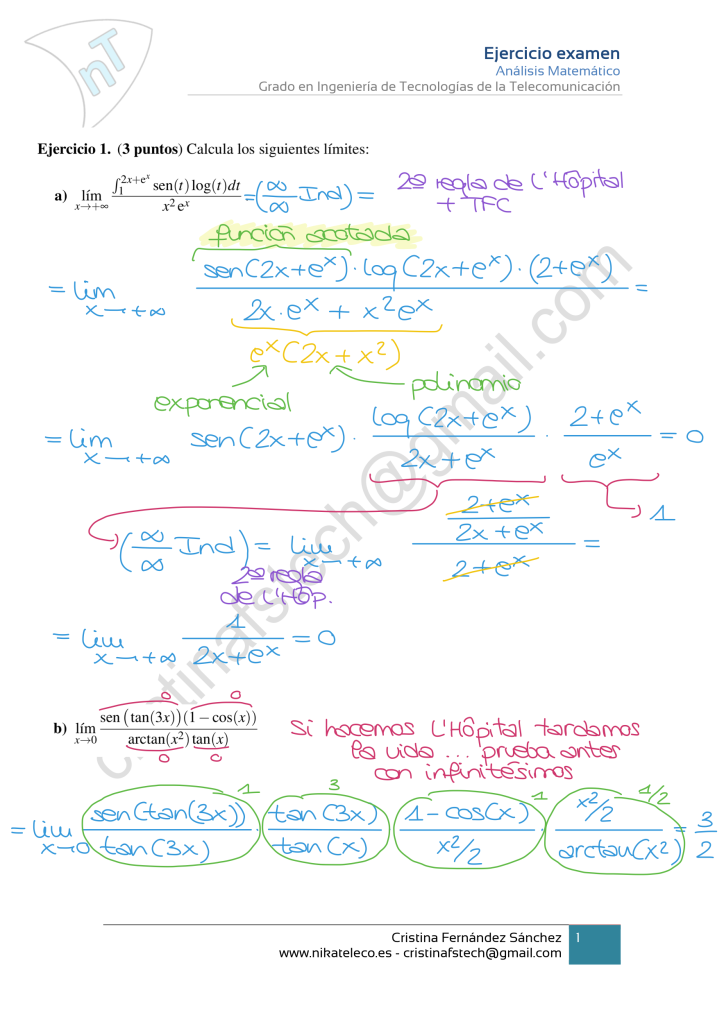 nT
Ejercicio examen
Análisis Matemático
Grado en Ingeniería de Tecnologías de la Telecomunicación
Ejercicio 1. (3 puntos) Calcula los siguientes límites:
a) lím x→+∞ ∫₁^(2x+eˣ) sen(t) log(t) dt / x² eˣ = (∞/∞ Ind) = 2ª regla de L'Hôpital
+ TFC
función acotada
= lim x→+∞ sen(2x+eˣ)·log(2x+eˣ)·(2+eˣ) / 2x·eˣ + x²eˣ =
eˣ(2x+x²)
exponencial polinomio
= lim x→+∞ sen(2x+eˣ) · log(2x+eˣ) / 2x+eˣ · 2+eˣ / eˣ = 0
1
(∞/∞ Ind) = lim x→+∞ 2+eˣ / 2x+eˣ / 2+eˣ =
2ª regla
de L'Hôp.
= lim x→+∞ 1 / 2x+eˣ = 0
0 0
b) lím x→0 sen(tan(3x))(1−cos(x)) / arctan(x²) tan(x)
0 0
Si hacemos L'Hôpital tardamos
la vida ... prueba antes
con infinitésimos
1 3 1 1/2
= lim x→0 sen(tan(3x)) / tan(3x) · tan(3x) / tan(x) · 1−cos(x) / x²/2 · x²/2 / arctan(x²) = 3/2
Cristina Fernández Sánchez 1
www.nikateleco.es - cristinafstech@gmail.com
cristinafstech@gmail.com